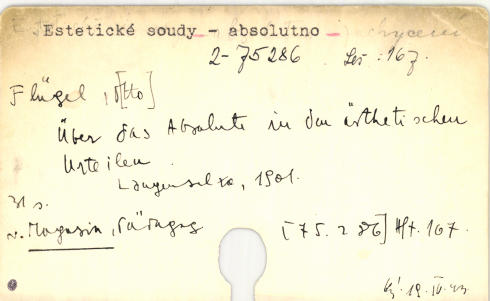 Estetické soudy - absolutno
2-75286 Seš: 167.
Flügel, O[tto]
Über das Absolute in den ästhetischen
Urteilen.
Langensalza, 1901.
31 s.
v. Magazin, Pädagog [75.286] Hft. 167.
19. IV.